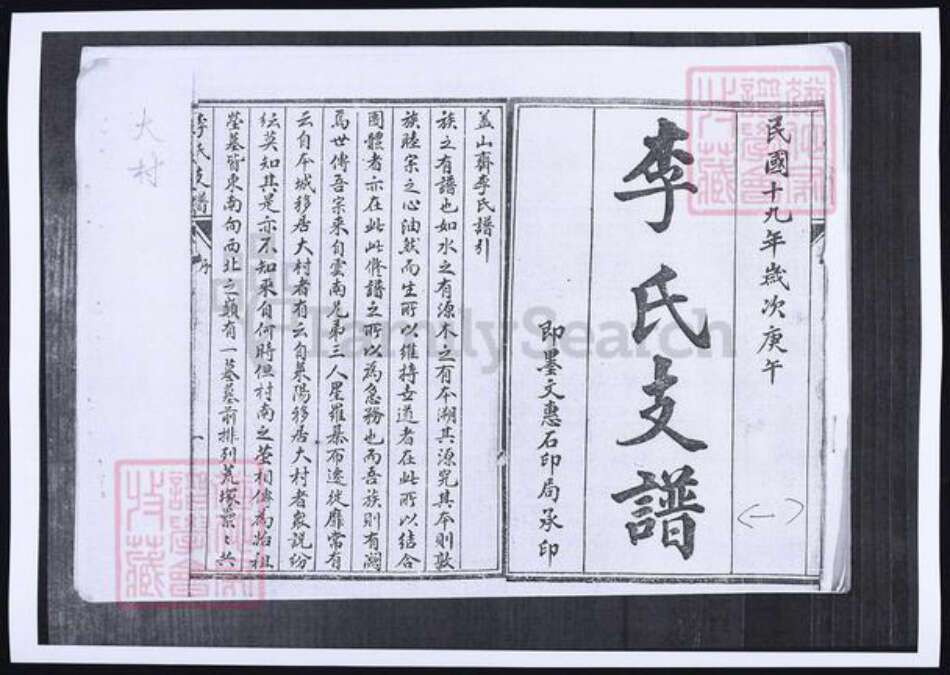 民國十九年歲次庚午
李氏支譜
(一)
即墨文惠石印局承印
蓋山齊李氏譜引
族之有譜也如水之有源木之有本溯其源究其本則敦
族睦宗之心油然而生所以維持世道者在此所以結合
團體者亦在此此修譜之所以為急務也而吾族則有闕
焉世傳吾宗來自雲南兄弟三人星羅棊布遷徙靡常有
云自本城移居大村者有云自萊陽移居大村者眾說紛
紜莫知其是亦不知來自何時但村南之塋相傳為始祖
塋墓皆東南向西北之巔有一墓墓前排列荒塚纍〻共
李氏支譜
序
一
大村
FamilySearch